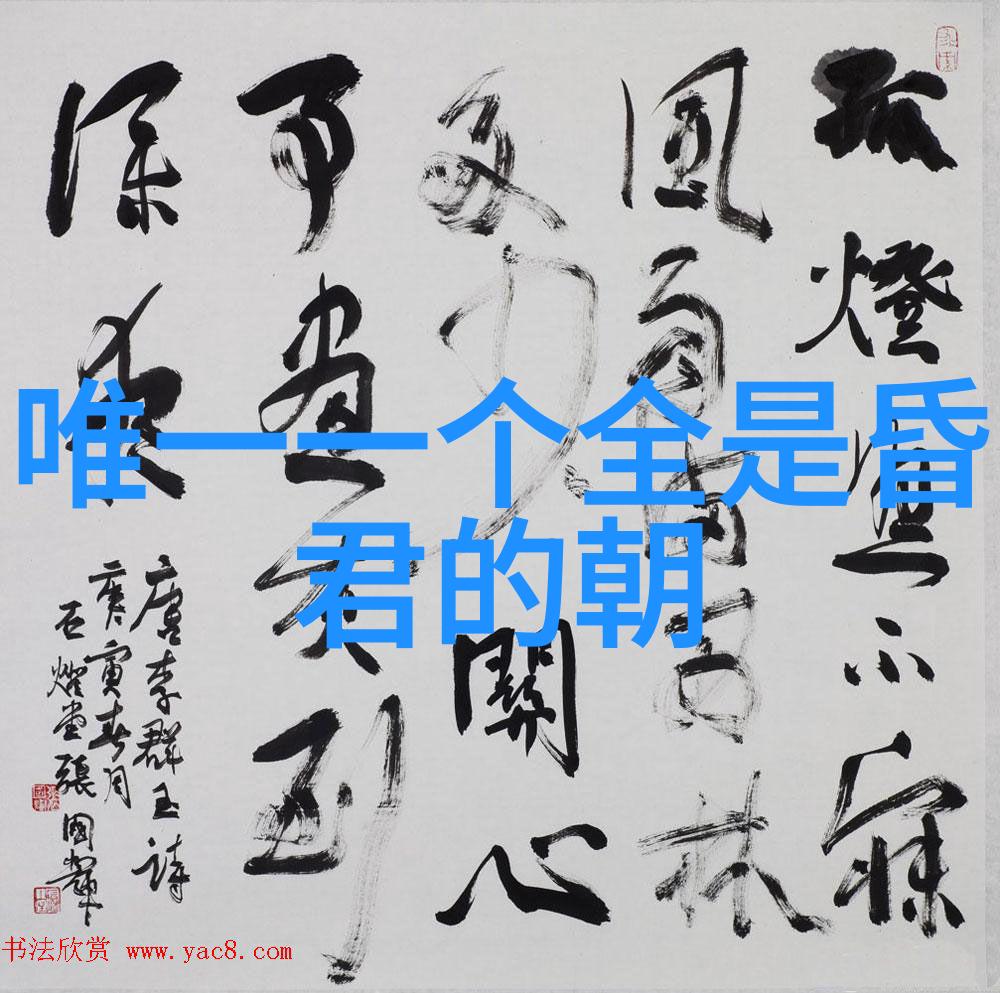 唯一一个全是昏
君的朝
孤燈照不寐
風雨滿西林
多少關心
事畫灰到
深夜
唐李群玉詩
庚寅春月
石燈堂張國輝
书法欣赏 www.yac8.com